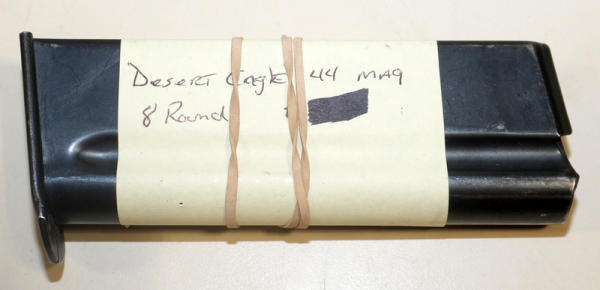 Desert Eagle 44 mag
8 Round